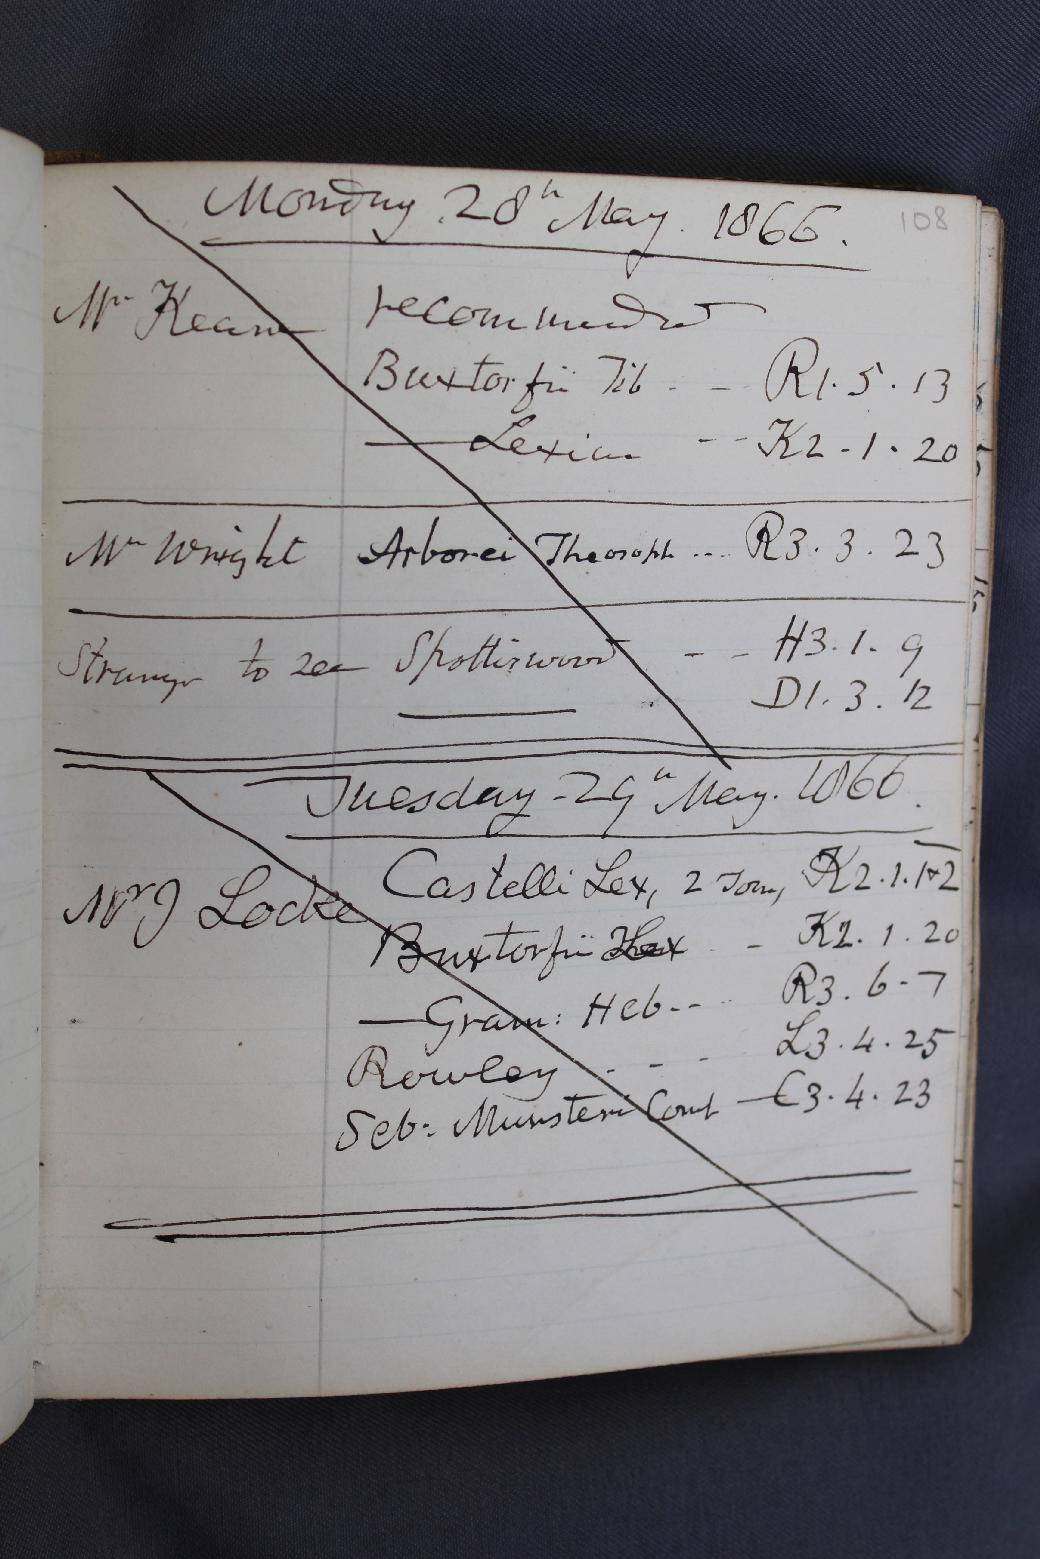 108
Monday 28th May. 1866.
Mr Keane recommended
Buxtorfii Tib - - R1.5.13
— Lexicon - - K2.1.20
Mr Wright Arborei Theosoph ... R3.3.23
Stranger to see Spottiswood - - H3.1.9
D1.3.12
Tuesday 29th May. 1866.
Mr J Locke Castelli Lex, 2 Tom, K2.1.1+2
Buxtorfii Lex - K2.1.20
— Gram: Heb - - R3.6.7
Rowley - - - L3.4.25
Seb: Munsteri Comt — C3.4.23